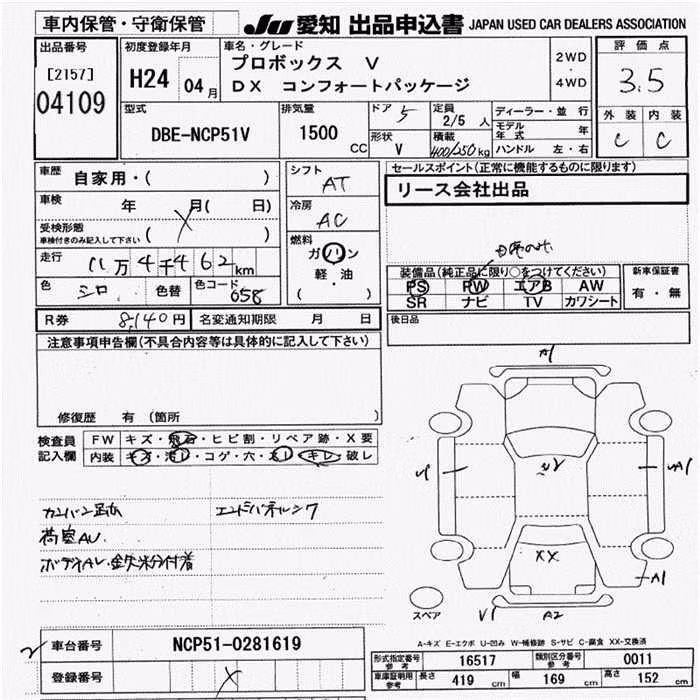 車内保管・守衛保管 JU 愛知 出品申込書 JAPAN USED CAR DEALERS ASSOCIATION
出品番号 初度登録年月 車名・グレード 評価点
[2157] H24 04月 プロボックス V 2WD
04109 DX コンフォートパッケージ 4WD 3.5
型式 排気量 ドア 5 定員 2/5 人 ディーラー・並行 外装 内装
DBE-NCP51V 1500 CC 形状 V 積載 400/250 kg モデル年式 年 C C
ハンドル 左・右
車歴 自家用・( ) シフト AT セールスポイント(正常に機能するものに限ります)
車検 年 月( 日) リース会社出品
受検形態 ( ) 冷房 AC
車検付きのみ記入して下さい
走行 11万4千462km 燃料 ガソリン 装備品(純正品に限り○をつけてください) 新車保証書
色 シロ 色替 色コード 058 軽・油 PS PW エアB AW 有・無
( ) SR ナビ TV カワシート
R券 8,140円 名変通知期限 月 日 後日品
注意事項申告欄(不具合内容等は具体的に記入して下さい)
修復歴 有 (箇所 )
検査員 FW キズ・飛石・ヒビ割・リペア跡・X要
記入欄 内装 キズ・汚レ・コゲ・穴・スレ・キレ・破レ
A1
UA1
XX
A1
スペア V1 A2
荷室AU.
車台番号 NCP51-0281619
登録番号
A-キズ E-エクボ U-凹み W-補修跡 S-サビ C-腐食 XX-交換済
形式指定番号 参考 16517 類別区分番号 参考 0011
車庫証明用 参考 長さ 419 cm 幅 169 cm 高さ 152 cm